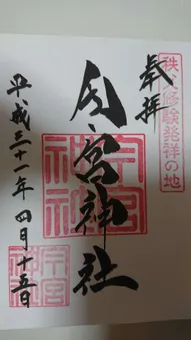 秩父修験発祥の地
奉拝
今宮神社
平成三十一年四月十五日
今宮
神社